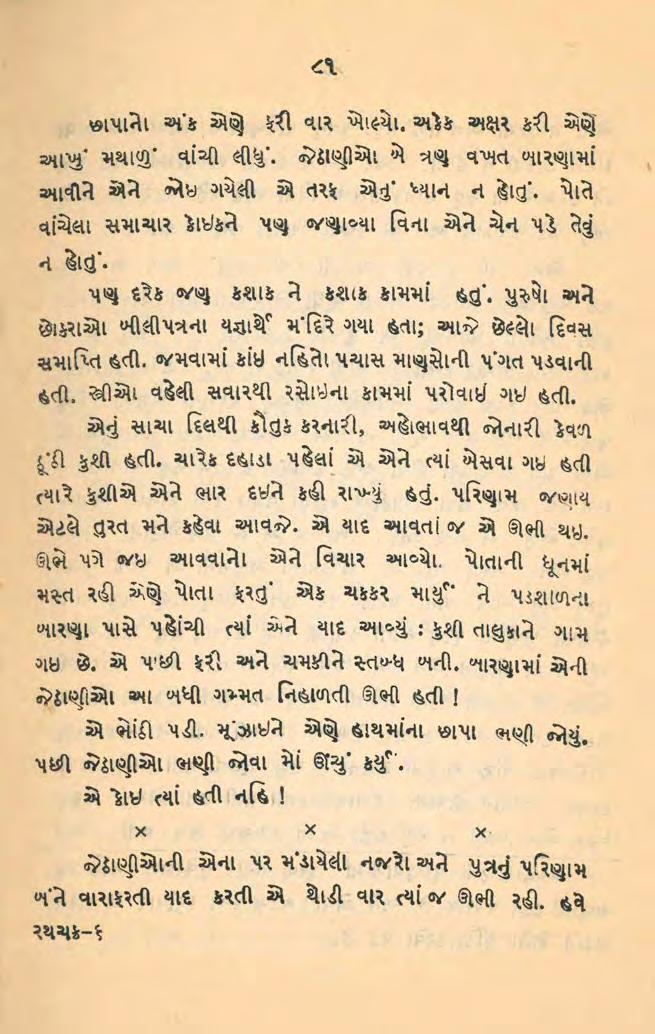 ૮૧
છાપાનો અંક એણે ફરી વાર ખોલ્યો. અકેક અક્ષર કરી એણે
આખું મથાળું વાંચી લીધું. જેઠાણીઓ બે ત્રણ વખત બારણામાં
આવીને એને જોઇ ગયેલી એ તરફ એનું ધ્યાન ન હોતું. પોતે
વાંચેલા સમાચાર કોઇકને પણ જણાવ્યા વિના એને ચેન પડે તેવું
ન હોતું.
પણ દરેક જણ કશાક ને કશાક કામમાં હતું. પુરુષો અને
છોકરાઓ બીલીપત્રના યજ્ઞાર્થે મંદિરે ગયા હતા; આજે છેલ્લો દિવસ
સમાપ્તિ હતી. જમવામાં કાંઇ નહિતો પચાસ માણસોની પંગત પડવાની
હતી. સ્ત્રીઓ વહેલી સવારથી રસોઇના કામમાં પરોવાઇ ગઇ હતી.
એનું સાચા દિલથી કૌતુક કરનારી, અહોભાવથી જોનારી કેવળ
ઠૂંઠી કુશી હતી. ચારેક દહાડા પહેલાં એ એને ત્યાં બેસવા ગઇ હતી
ત્યારે કુશીએ એને ભાર દઇને કહી રાખ્યું હતું. પરિણામ જણાય
એટલે તુરત મને કહેવા આવજે. એ યાદ આવતાં જ એ ઊભી થઇ.
ઊભે પગે જઇ આવવાનો એને વિચાર આવ્યો. પોતાની ધૂનમાં
મસ્ત રહી એણે પોતા ફરતું એક ચક્કર માર્યું ને પડશાળના
બારણા પાસે પહોંચી ત્યાં એને યાદ આવ્યું : કુશી તાલુકાને ગામ
ગઇ છે. એ પંછી ફરી અને ચમકીને સ્તબ્ધ બની. બારણામાં એની
જેઠાણીઓ આ બધી ગમ્મત નિહાળતી ઊભી હતી !
એ ભોંઠી પડી. મૂંઝાઇને એણે હાથમાંના છાપા ભણી જોયું.
પછી જેઠાણીઓ ભણી જોવા મોં ઊંચું કર્યું.
એ કોઇ ત્યાં હતી નહિ !
× × ×
જેઠાણીઓની એના પર મંડાયેલી નજરો અને પુત્રનું પરિણામ
બંને વારાફરતી યાદ કરતી એ થોડી વાર ત્યાં જ ઊભી રહી. હવે
રથચક્ર–૬